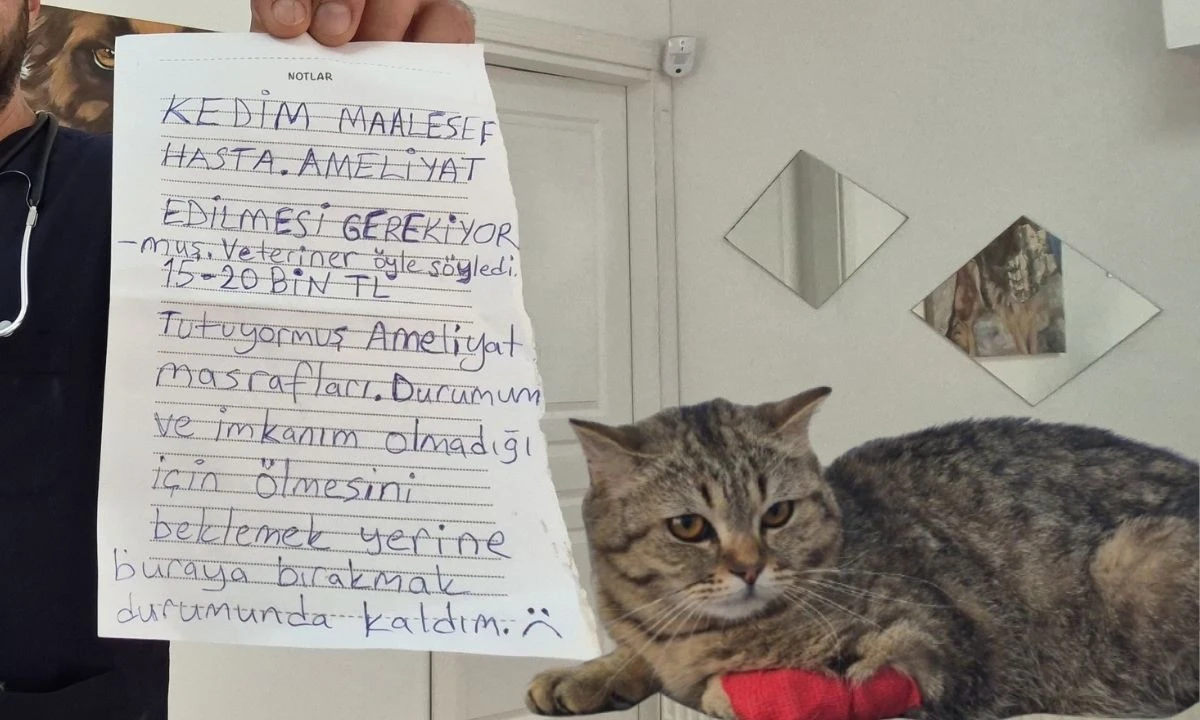 NOTLAR
KEDİM MAALESEF
HASTA. AMELİYAT
EDİLMESİ GEREKİYOR
-muş. Veteriner öyle söyledi.
15-20 BİN TL
Tutuyormuş Ameliyat
masrafları. Durumum
ve imkanım olmadığı
için ölmesini
beklemek yerine
buraya bırakmak
durumunda kaldım. :(